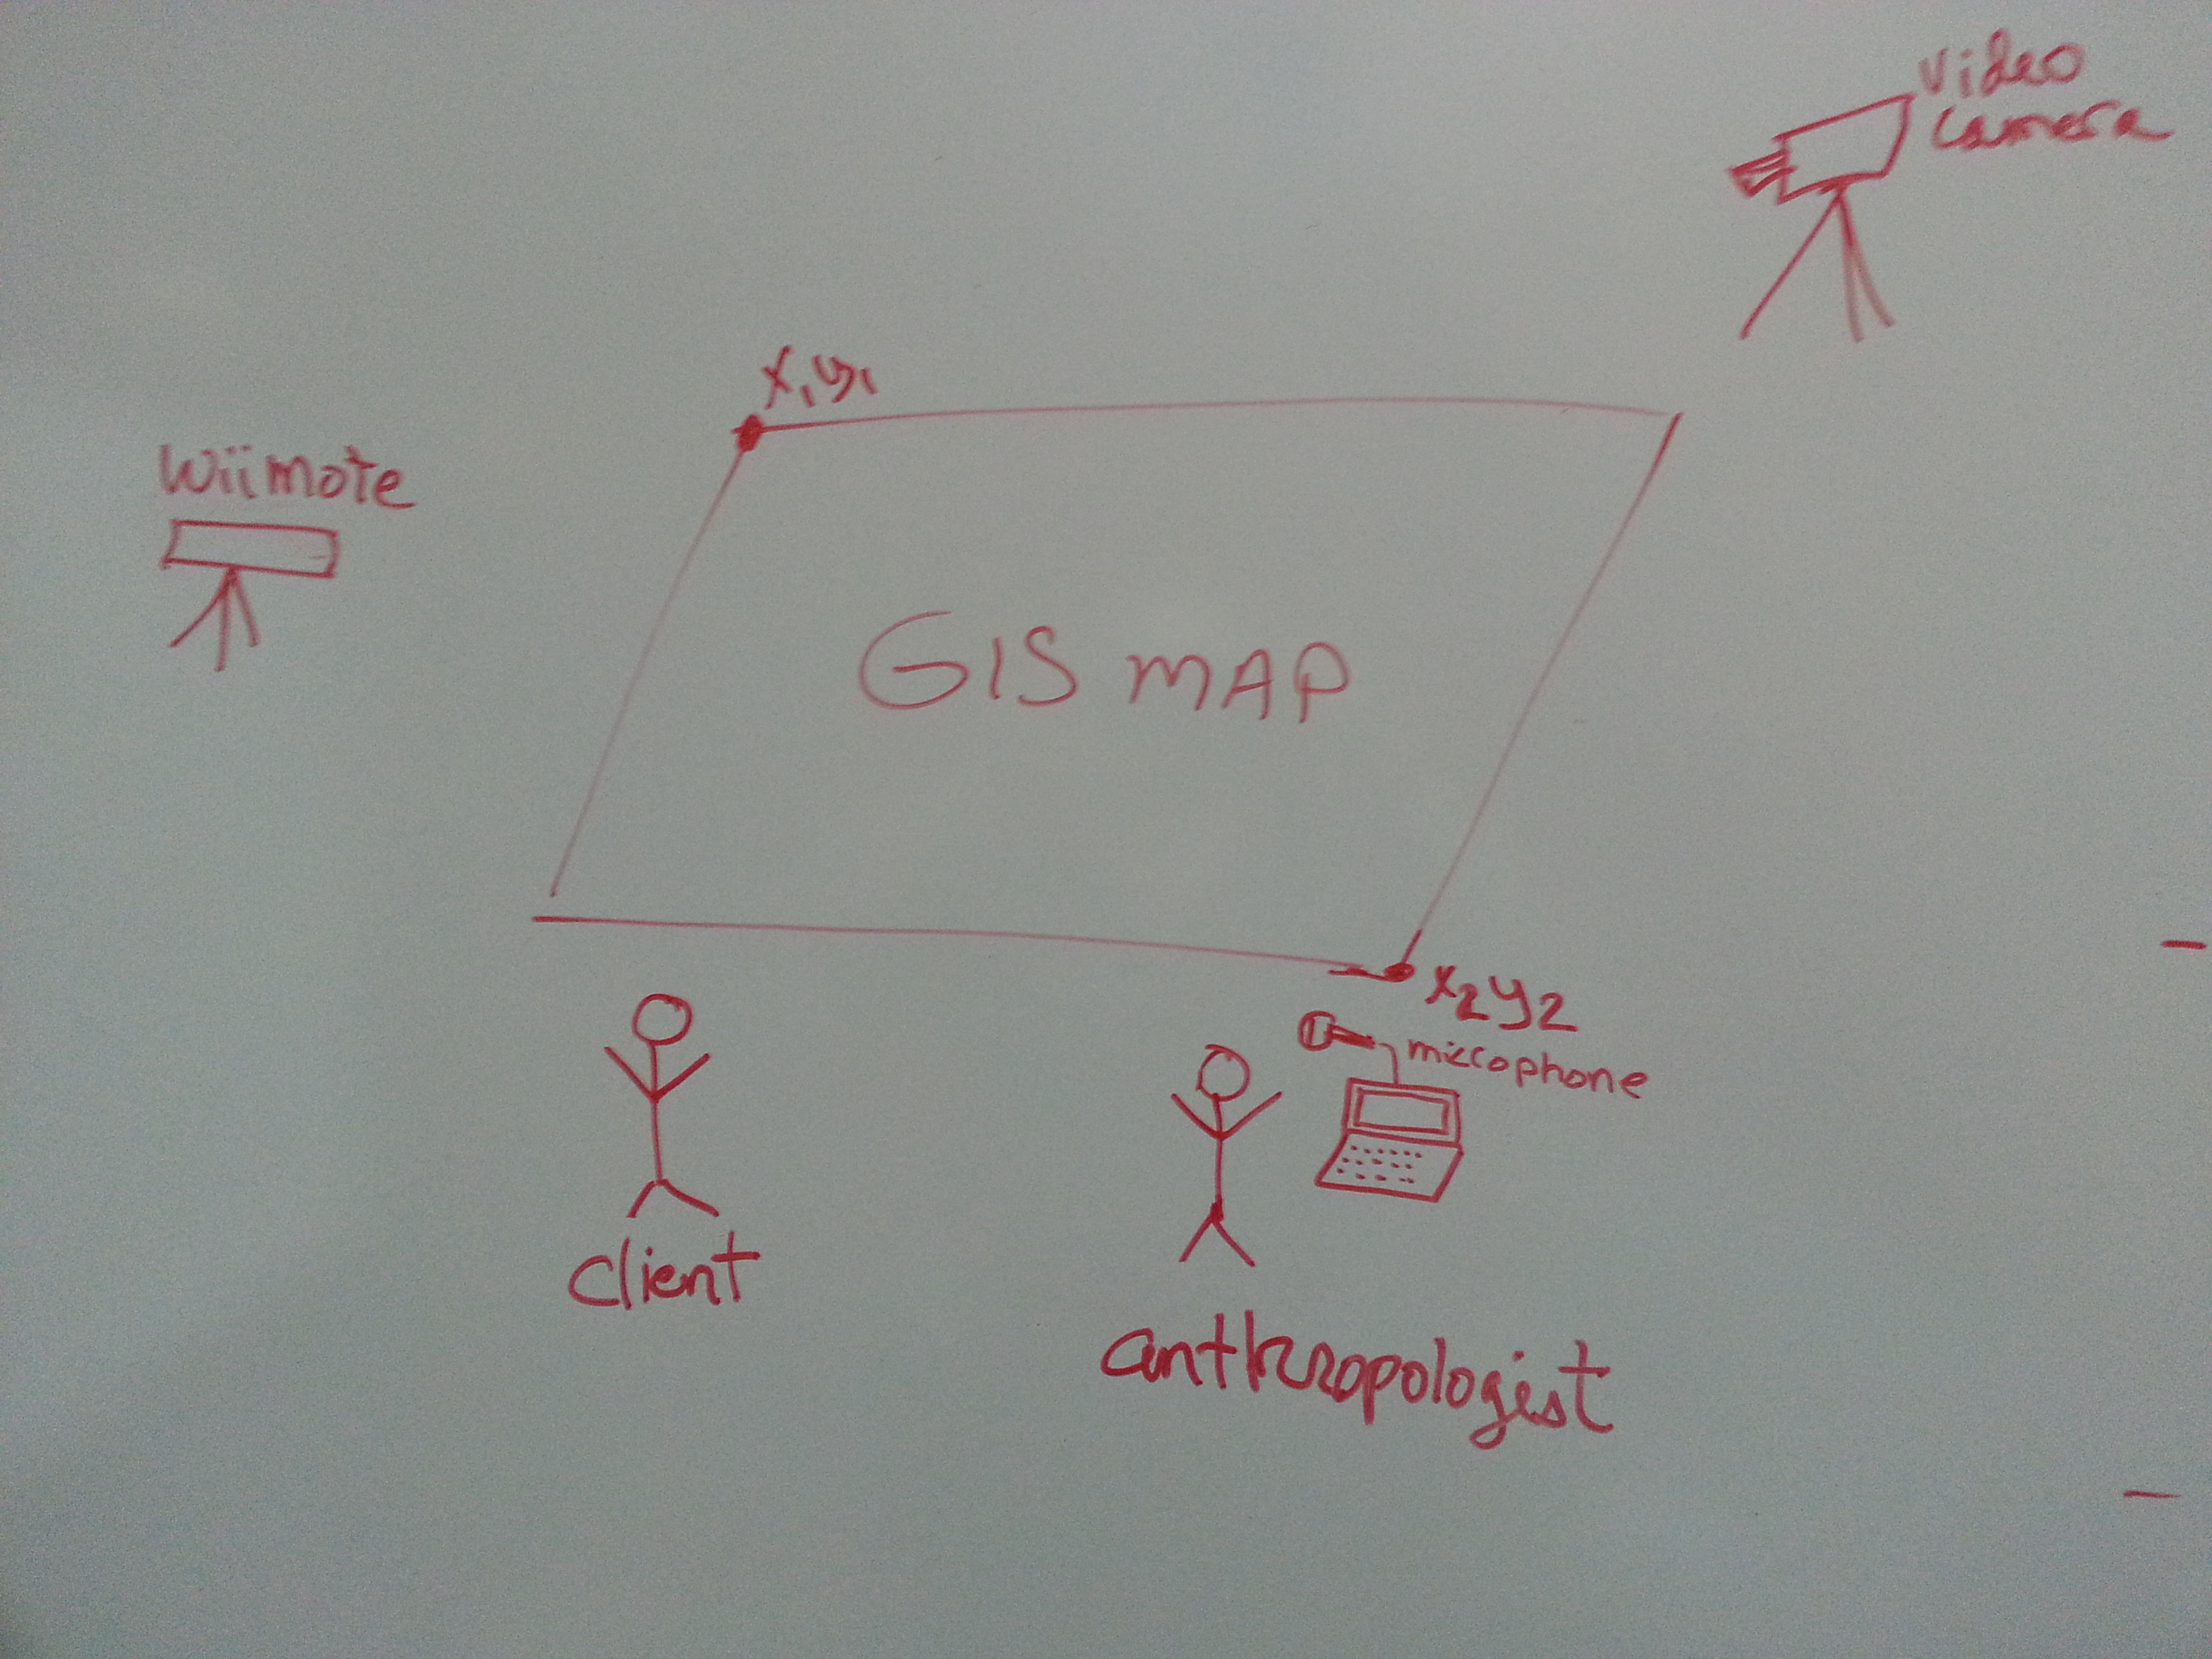 video
camera
x1y1
wiimote
GIS MAP
x2y2
microphone
client
anthropologist